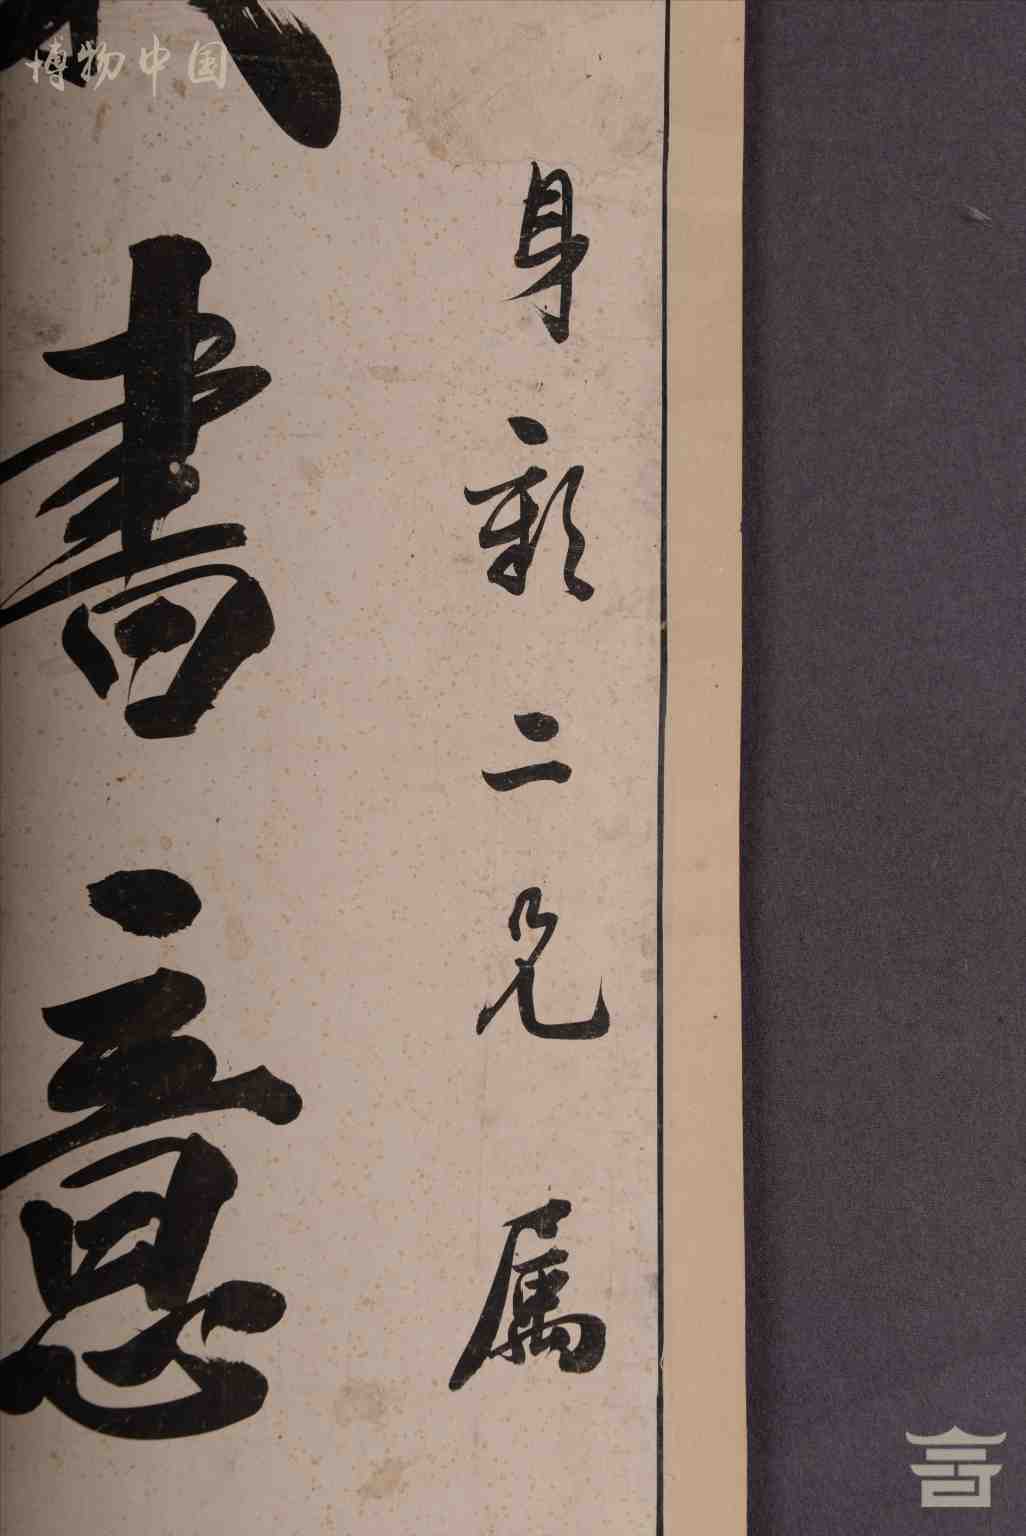 身彰二兄属
書意
博物中国